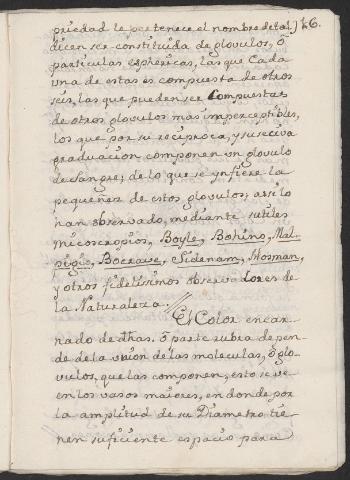 priedad le pertenece el nombre de tal) 46.
dicen ser constituida de glovulos, ò
particulas esphericas, las que Cada
una de estas es compuesta de otros
seis, las que pueden ser Compuestas
de otros glovulos mas imperceptibles,
los que por su reciproca, y succiva
graduacion componen un glovulo
de Sangre; de lo que se ynfiere la
pequeñez de estos glovulos; assi lo
han observado, mediante sutiles
micoscropios, Boyle, Bohino, Mal-
pigio, Bocrave, Sidenam, Hosman,
y otros fidelissimos observadores de
la Naturaleza.
El Color encar-
nado de dhas. ò parte rubra depen-
de de la union de las moleculas, ò glo-
vulos, que las componen, esto se ve
en los vasos maiores, en donde por
la amplitud de su Diametro tie-
nen suficiente espacio para